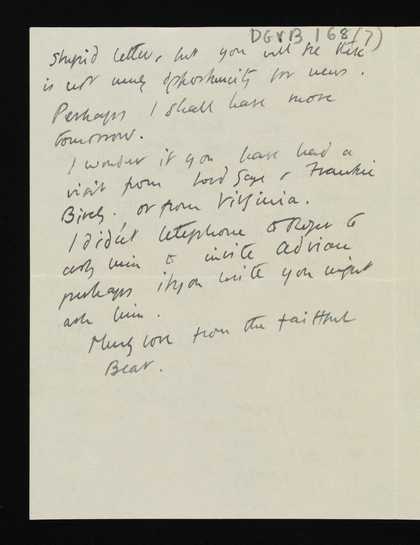 DGVB 168(7)
stupid letter, but you will see there
is not much opportunity for news.
Perhaps I shall have more
tomorrow.
I wonder if you have had a
visit from Lord Gage & Frankie
Birch. or from Virginia.
I didn't telephone to Roger to
ask him to invite Adrian
perhaps if you write you might
ask him.
Much love from the faithful
Bear.